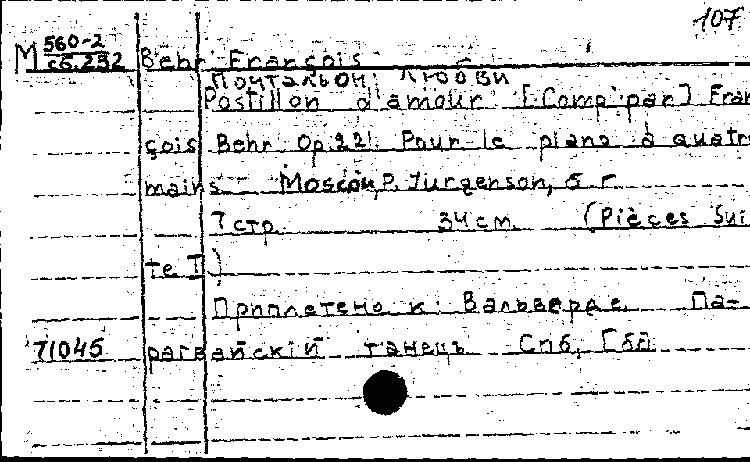 107
М 560-2
сб.232 Behr François
Почтальон любви
Postillon d'amour [Comp. par] Fran
çois Behr Op.221. Pour le piano à quatre
mains Moscou, P. Jurgenson, б.г.
7 стр. 34 см. (Pièces Sui
te I)
Приплетено к: Вальверде. Па-
71045 рагвайскій танецъ Спб, [бг]